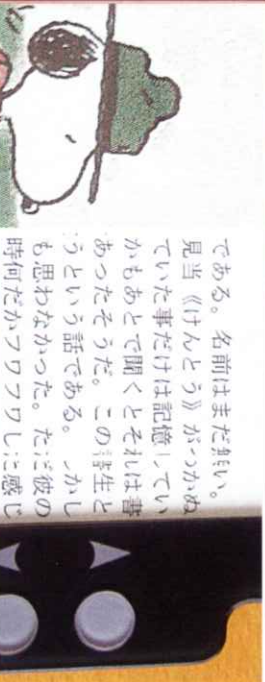 である。名前はまだ無い。
見当《けんとう》がつかぬ
ていた事だけは記憶してい
かもあとで聞くとそれは書
あったそうだ。この書生と
うという話である。しかし
も思わなかった。ただ彼の
時何だかフワフワした感じ